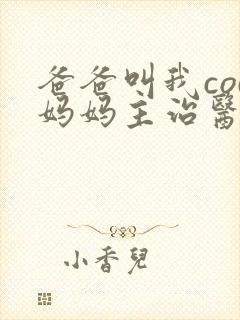 爸爸叫我co
妈妈主治醫
小香兒